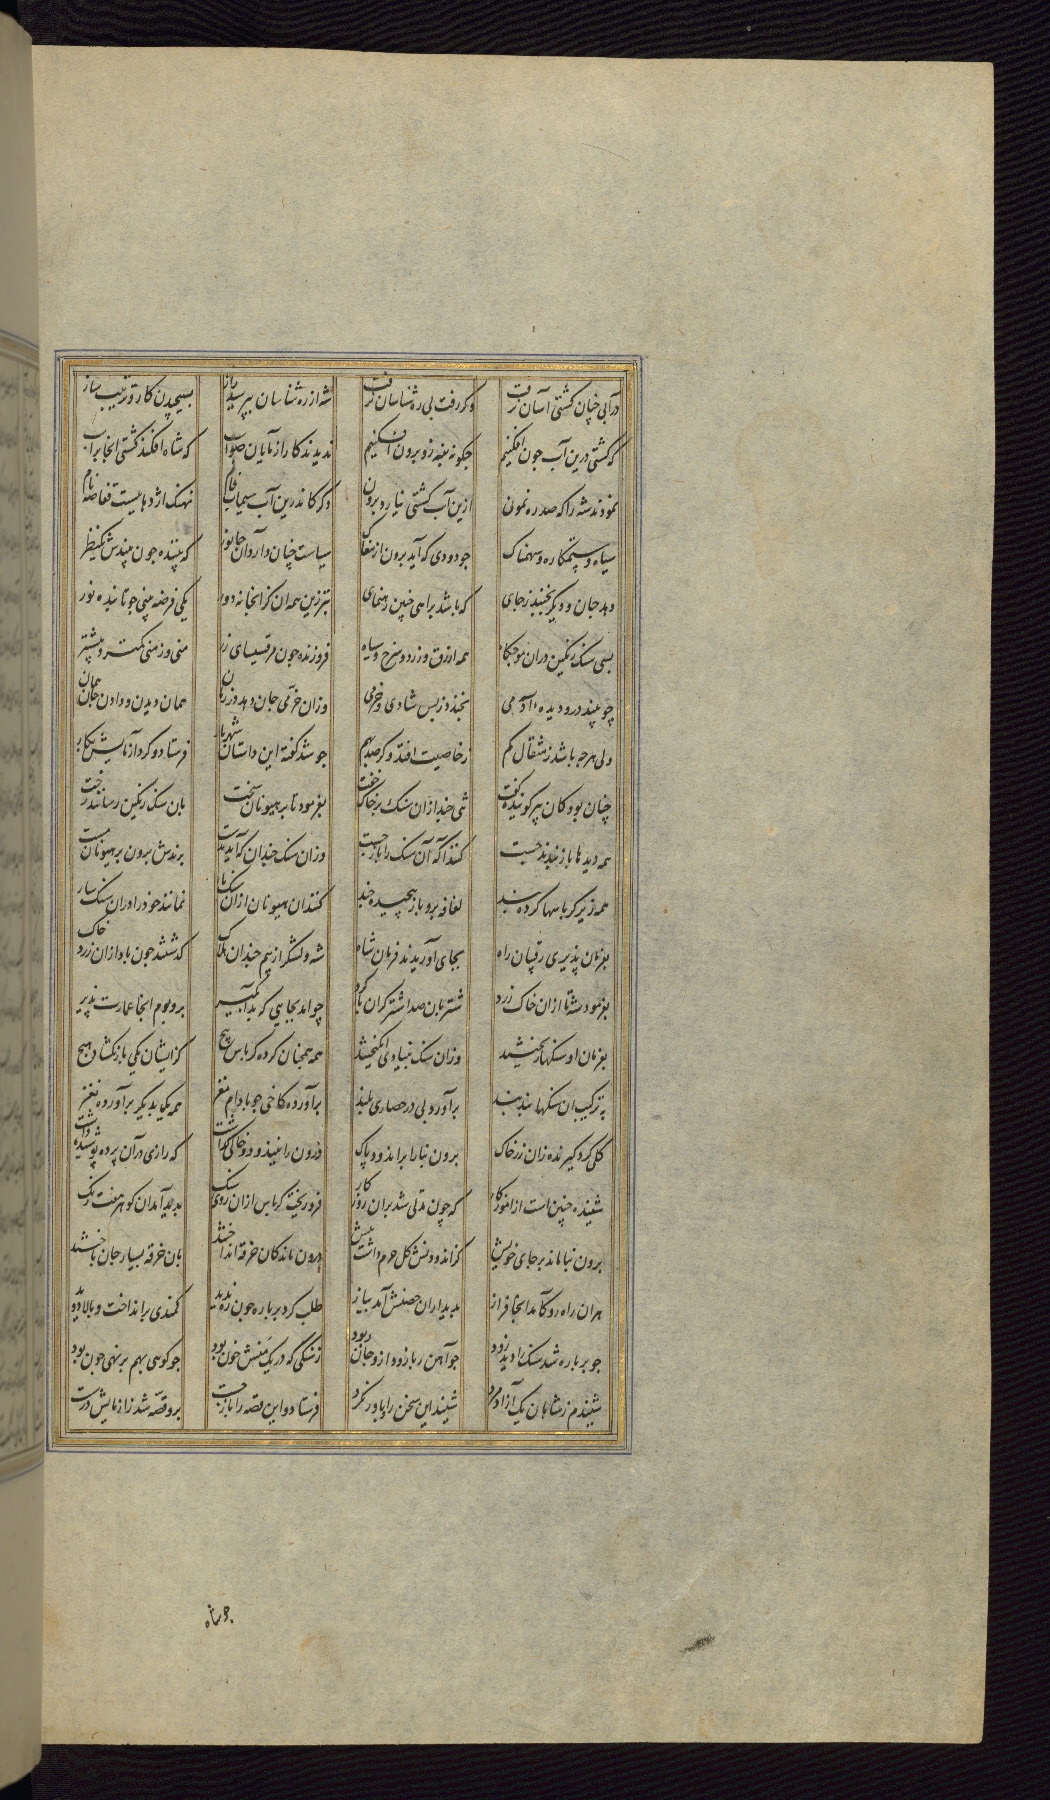 درآبی چنان کشتی آسان نرفت وکر رفت بی ره‌شناسان نرفت شه از ره شناسان بپرسید راز بسیچیدن کار و ترتیب ساز
که کشتی درین آب چون افکنیم چکونه بنه زو برون افکنیم ندیدند کار آزمایان صواب که شاه افکند کشتی انجا براب
نمودند شه را که صد رهنمون ازین آب کشتی نیارد برون دکر کاندرین آب سیماب فام نهنک اژدهاییست قصاصه نام
سیاه و ستمکاره و سهمناک چو دودی که آید برون از مغاک سیاست چنان دارد آن جانور که بیننده چون بیندش یکنظر
دهد جان و دیکر نجنبد ز جای که باشد براهی چنین رهنمای بتر زین همه آن کز انجا نه دور یکی فرضه بینی چو تابنده نور
بسی سنک رنکین دران موجکاه همه ازرق و زرد و سرخ و سیاه فروزنده چون مرقشیسای زر منی وز منی کمتر و بیشتر
چو بیند درو دیدهٔ آدمی بخندد ز بس شادی و خرمی وزان خرمی جان دهد در زمان همان دیدن و دادن جان همان
ولی هرچه باشد ز مثقال کم ز خاصیت افتد وکر صد بهم چو شد کفته این داستان شهریار فرستاد و کرد آزمایش بکار
چنان بود کان پیر کوینده کفت تنی چند ازان سنک بر خاک خفت بفرمود تا بر هیونان سخت بان سنک رنکین رسانند رخت
همه دیدها باز بندند چست کنند آکه آن سنک را باز جست وزان سنک چندان که آید بدست برندش برون بر هیونان مست
همه زیر کرباسها کرده بند لفافه برو باز پیچیده چند کنند آن هیونان ازان سنک بار نمانند خود را دران سنک سار
بفرمان پذیری رقیبان راه بجای آوریدند فرمان شاه شه و لشکر از بیم چندان هلاک کذشتند چون باد ازان زرد خاک
بفرمود شه تا ازان خاک زرد شتربان صد اشتر کران بار کرد چو امد بجایی که بد آبکیر برو بوم انجا عمارت پذیر
بفرمان او سنکها ریختند وزان سنک بنیادی انکیختند همه همچنان کرده کرباس پیچ کز ایشان یکی باز نکشاد هیچ
به ترکیب ان سنکها بند بند برآورد بی در حصاری بلند برآورده کاخی چو بادام مغز همه یکبدیکر برآورده نغز
کلی کرد کیرنده زان زرد خاک برون بنا را براندود پاک درون را نیندود و خالی کذاشت که رازی درآن پرده پوشیده داشت
شنیدم چنین است از آموزکار که چون مدتی شد بران روزکار فرو ریخت کرباس ازان روی سنک پدید آمد ان کوهر هفت رنک
برون بنا ماند بر جای خویش کز اندودنش کل حرم داشت پیش درون ماندکان خرقه انداختند بان خرقه بسیار جان باختند
هران راه رو کآمد انجا فراز بدیدار ان حصنش آمد نیاز طلب کرد بر باره چون ره ندید کمندی برانداخت و بالا دوید
چو بر باره شد سنک را دید زود چو آهن ربا زود ازو جان ربود ز سنکی که در یک منش خون بود چو کوهی بهم برنهی چون بود
شنیدم ز شاهان یکی آزادمرد شنید این سخن را و باور نکرد فرستاد و این قصه را باز جست برو قصه شد زازمایش درست